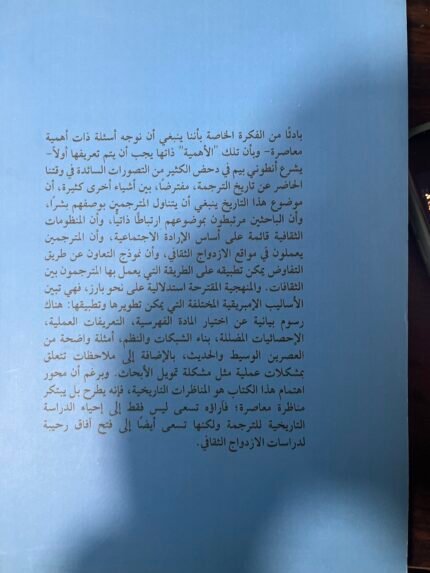 بادئًا من الفكرة الخاصة بأننا ينبغي أن نوجه أسئلة ذات أهمية
معاصرة- وبأن تلك "الأهمية" ذاتها يجب أن يتم تعريفها أولاً-
يشرع أنطوني بيم في دحض الكثير من التصورات السائدة في وقتنا
الحاضر عن تاريخ الترجمة، مفترضًا، بين أشياء أخرى كثيرة، أن
موضوع هذا التاريخ ينبغي أن يتناول المترجمين بوصفهم بشرًا،
وأن الباحثين مرتبطون بموضوعهم ارتباطًا ذاتياً، وأن المنظومات
الثقافية قائمة على أساس الإرادة الاجتماعية، وأن المترجمين
يعملون في مواقع الازدواج الثقافي، وأن نموذج التعاون عن طريق
التفاوض يمكن تطبيقه على الطريقة التي يعمل بها المترجمون بين
الثقافات. والمنهجية المقترحة استدلالية على نحو بارز، فهي تبين
الأساليب الإمبريقية المختلفة التي يمكن تطويرها وتطبيقها: هناك
رسوم بيانية عن اختيار المادة الفهرسية، التعريفات العملية،
الإحصائيات المضللة، بناء الشبكات والنظم، أمثلة واضحة من
العصرين الوسيط والحديث، بالإضافة إلى ملاحظات تتعلق
بمشكلات عملية مثل مشكلة تمويل الأبحاث. وبرغم أن محور
اهتمام هذا الكتاب هو المناظرات التاريخية، فإنه يطرح بل يبتكر
مناظرة معاصرة؛ فآراؤه تسعى ليس فقط إلى إحياء الدراسة
التاريخية للترجمة ولكنها تسعى أيضًا إلى فتح آفاق رحيبة
لدراسات الازدواج الثقافي.